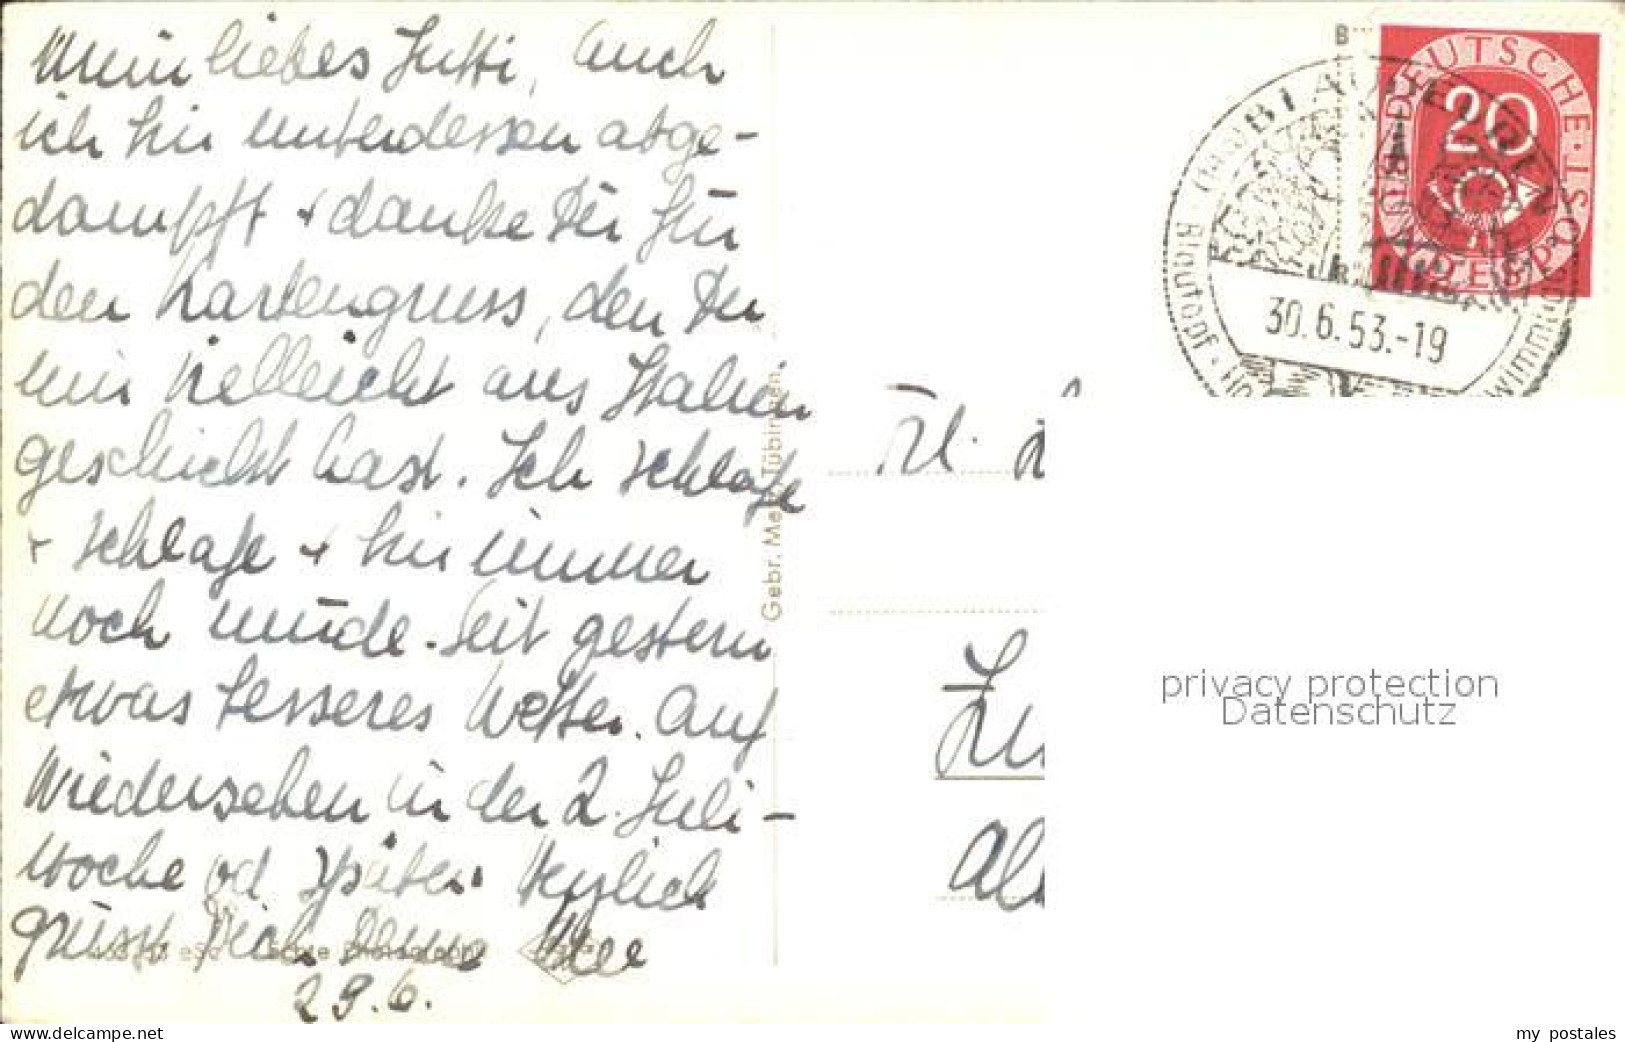 Mein liebes Jutti, Auch
ich bin unterdessen abge-
dampft + danke Dir für
den Kartengruss, den Du
mir vielleicht aus Italien
geschickt hast. Ich schlafe
+ schlafe + bin immer
noch müde. Seit gestern
etwas besseres Wetter. Auf
Wiedersehen in der 2. Juli-
woche od später. Herzlich
grüsst Dich Deine
29.6.
Gebr. Metz, Tübingen
Echte Photographie
DEUTSCHE BUNDESPOST
20
BLAUBEUREN
Blautopf
30.6.53.-19
Frl.
privacy protection
Datenschutz
www.delcampe.net
my_postales